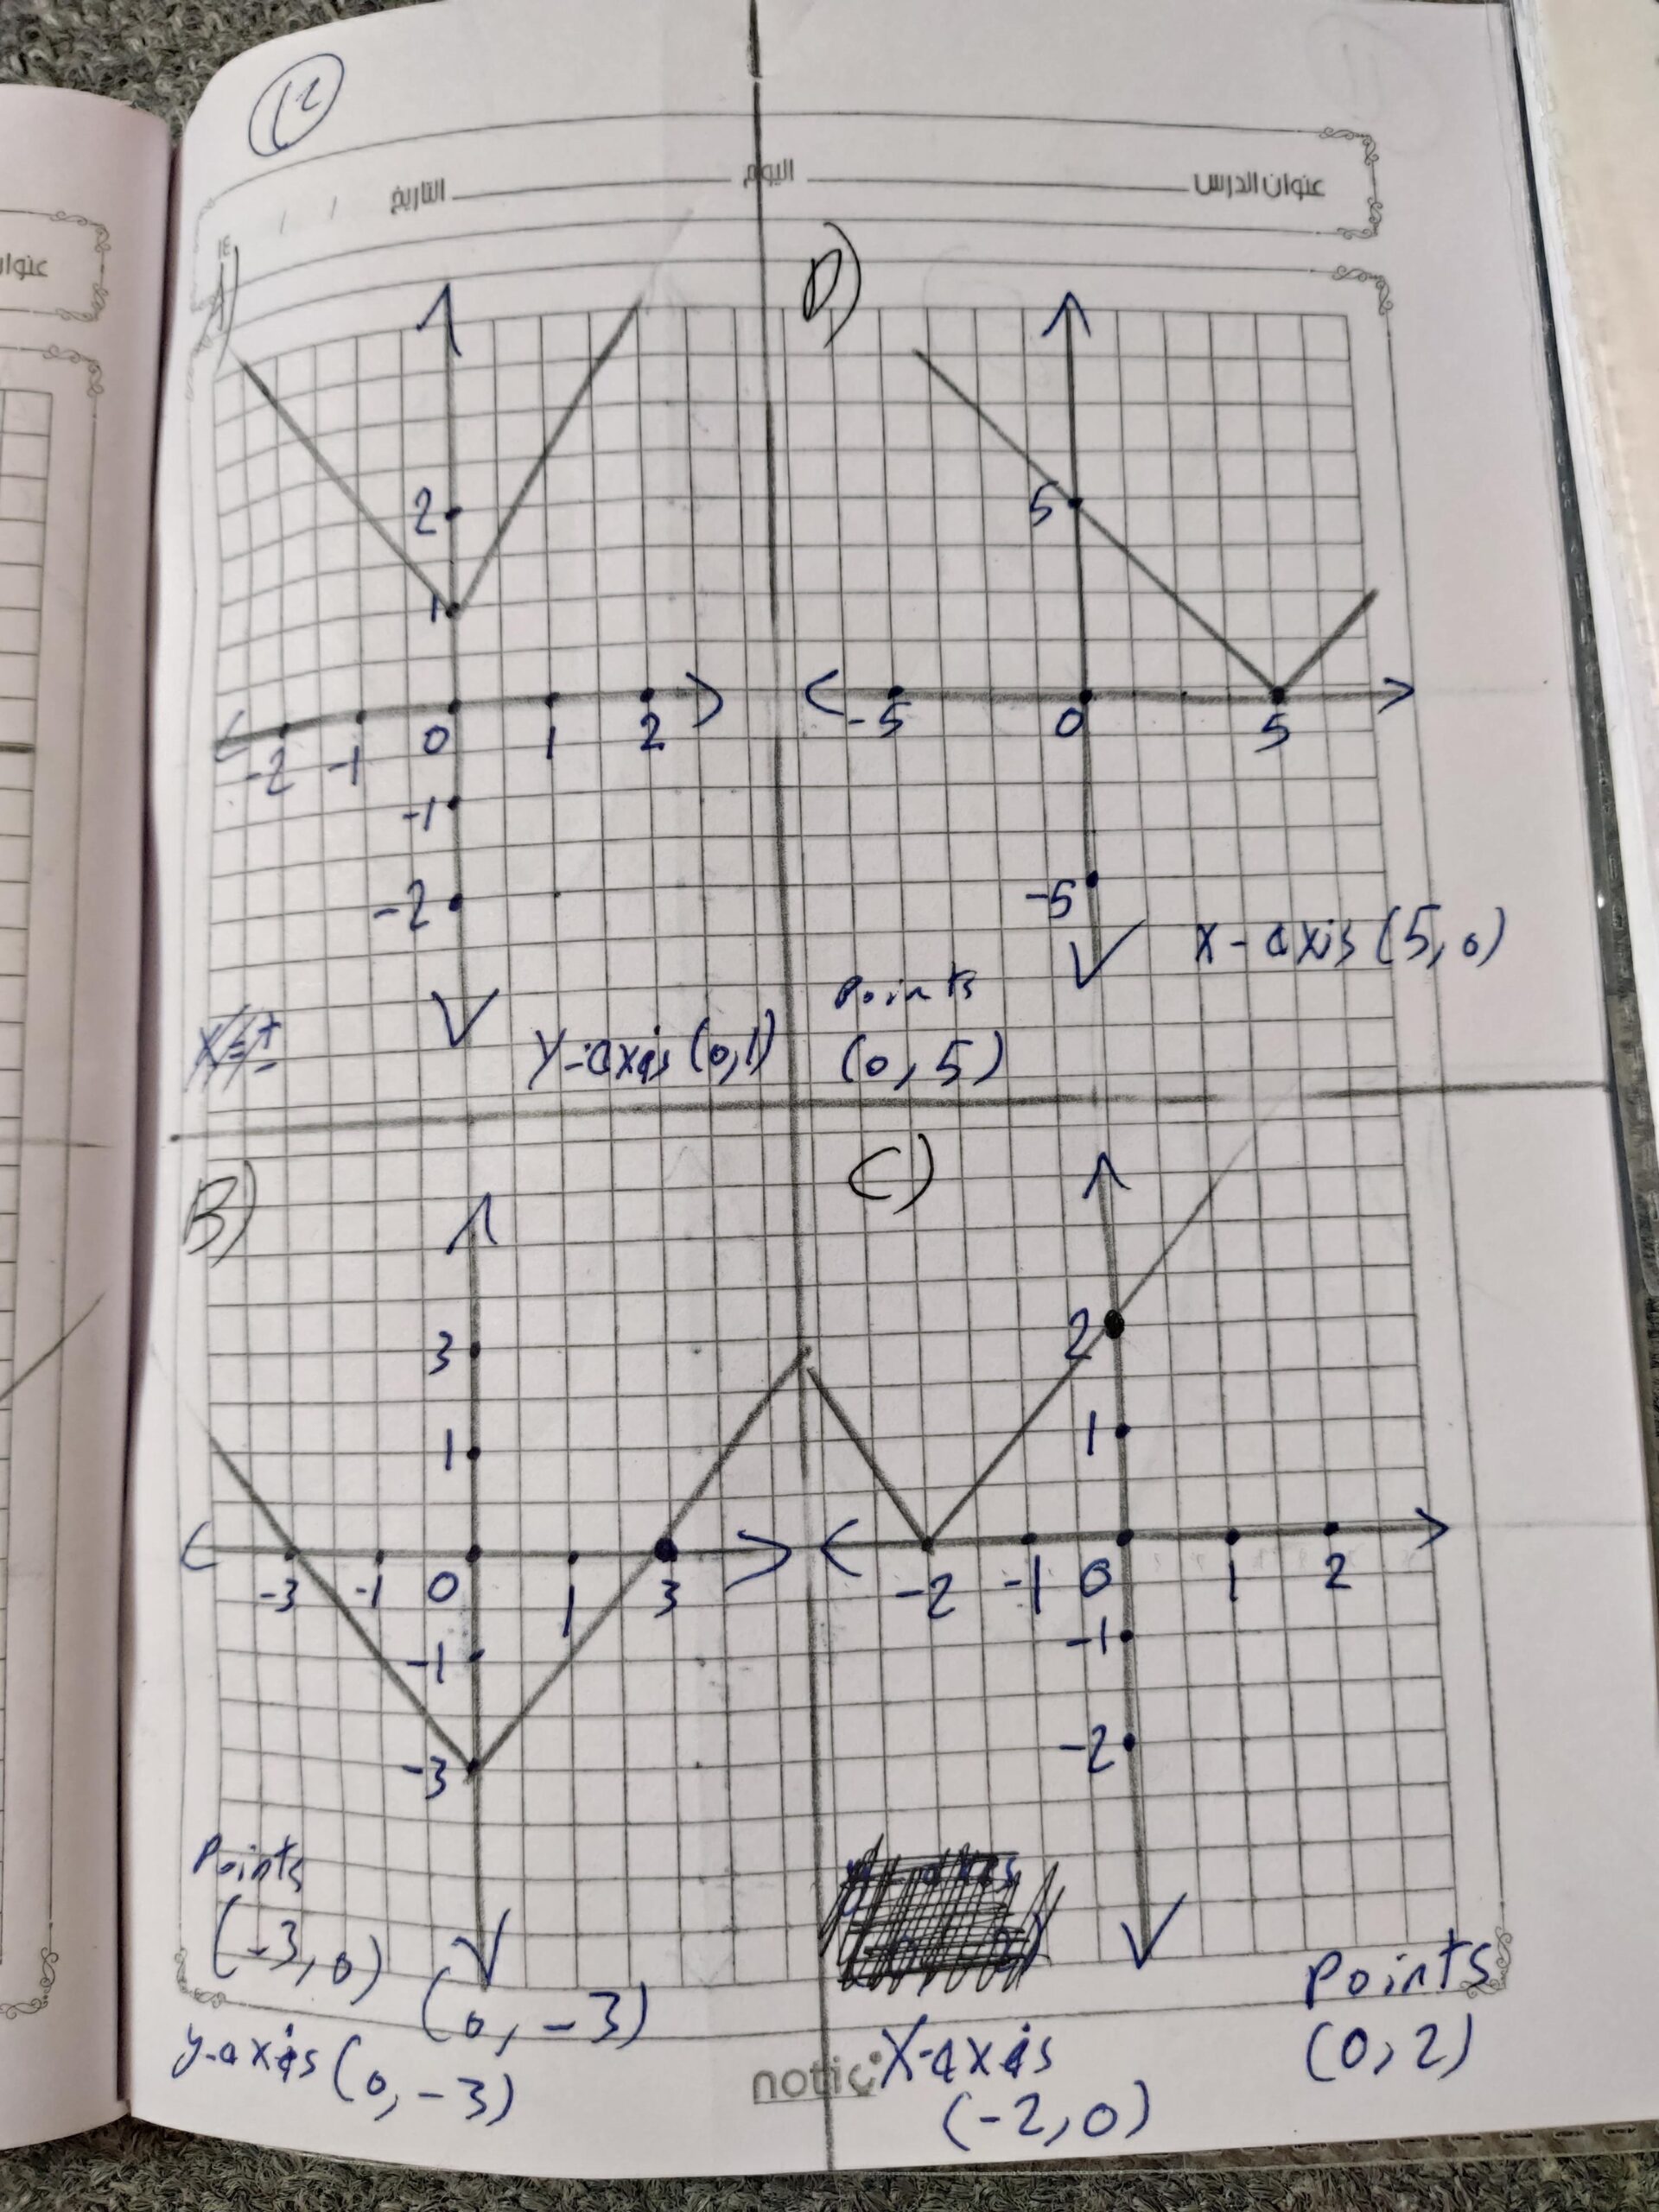 12
عنوان الدرس اليوم التاريخ / /
١٤
A)
2
1
-2 -1 0 1 2
-1
-2
Y-axis (0,1)
D)
5
-5 0 5
-5
X-axis (5,0)
Points
(0,5)
B)
3
1
-3 -1 0 1 3
-1
-3
Points
(-3,0) (0,-3)
y-axis (0,-3)
C)
2
1
-2 -1 0 1 2
-1
-2
X-axis
(-2,0)
Points
(0,2)
notic
عنوان